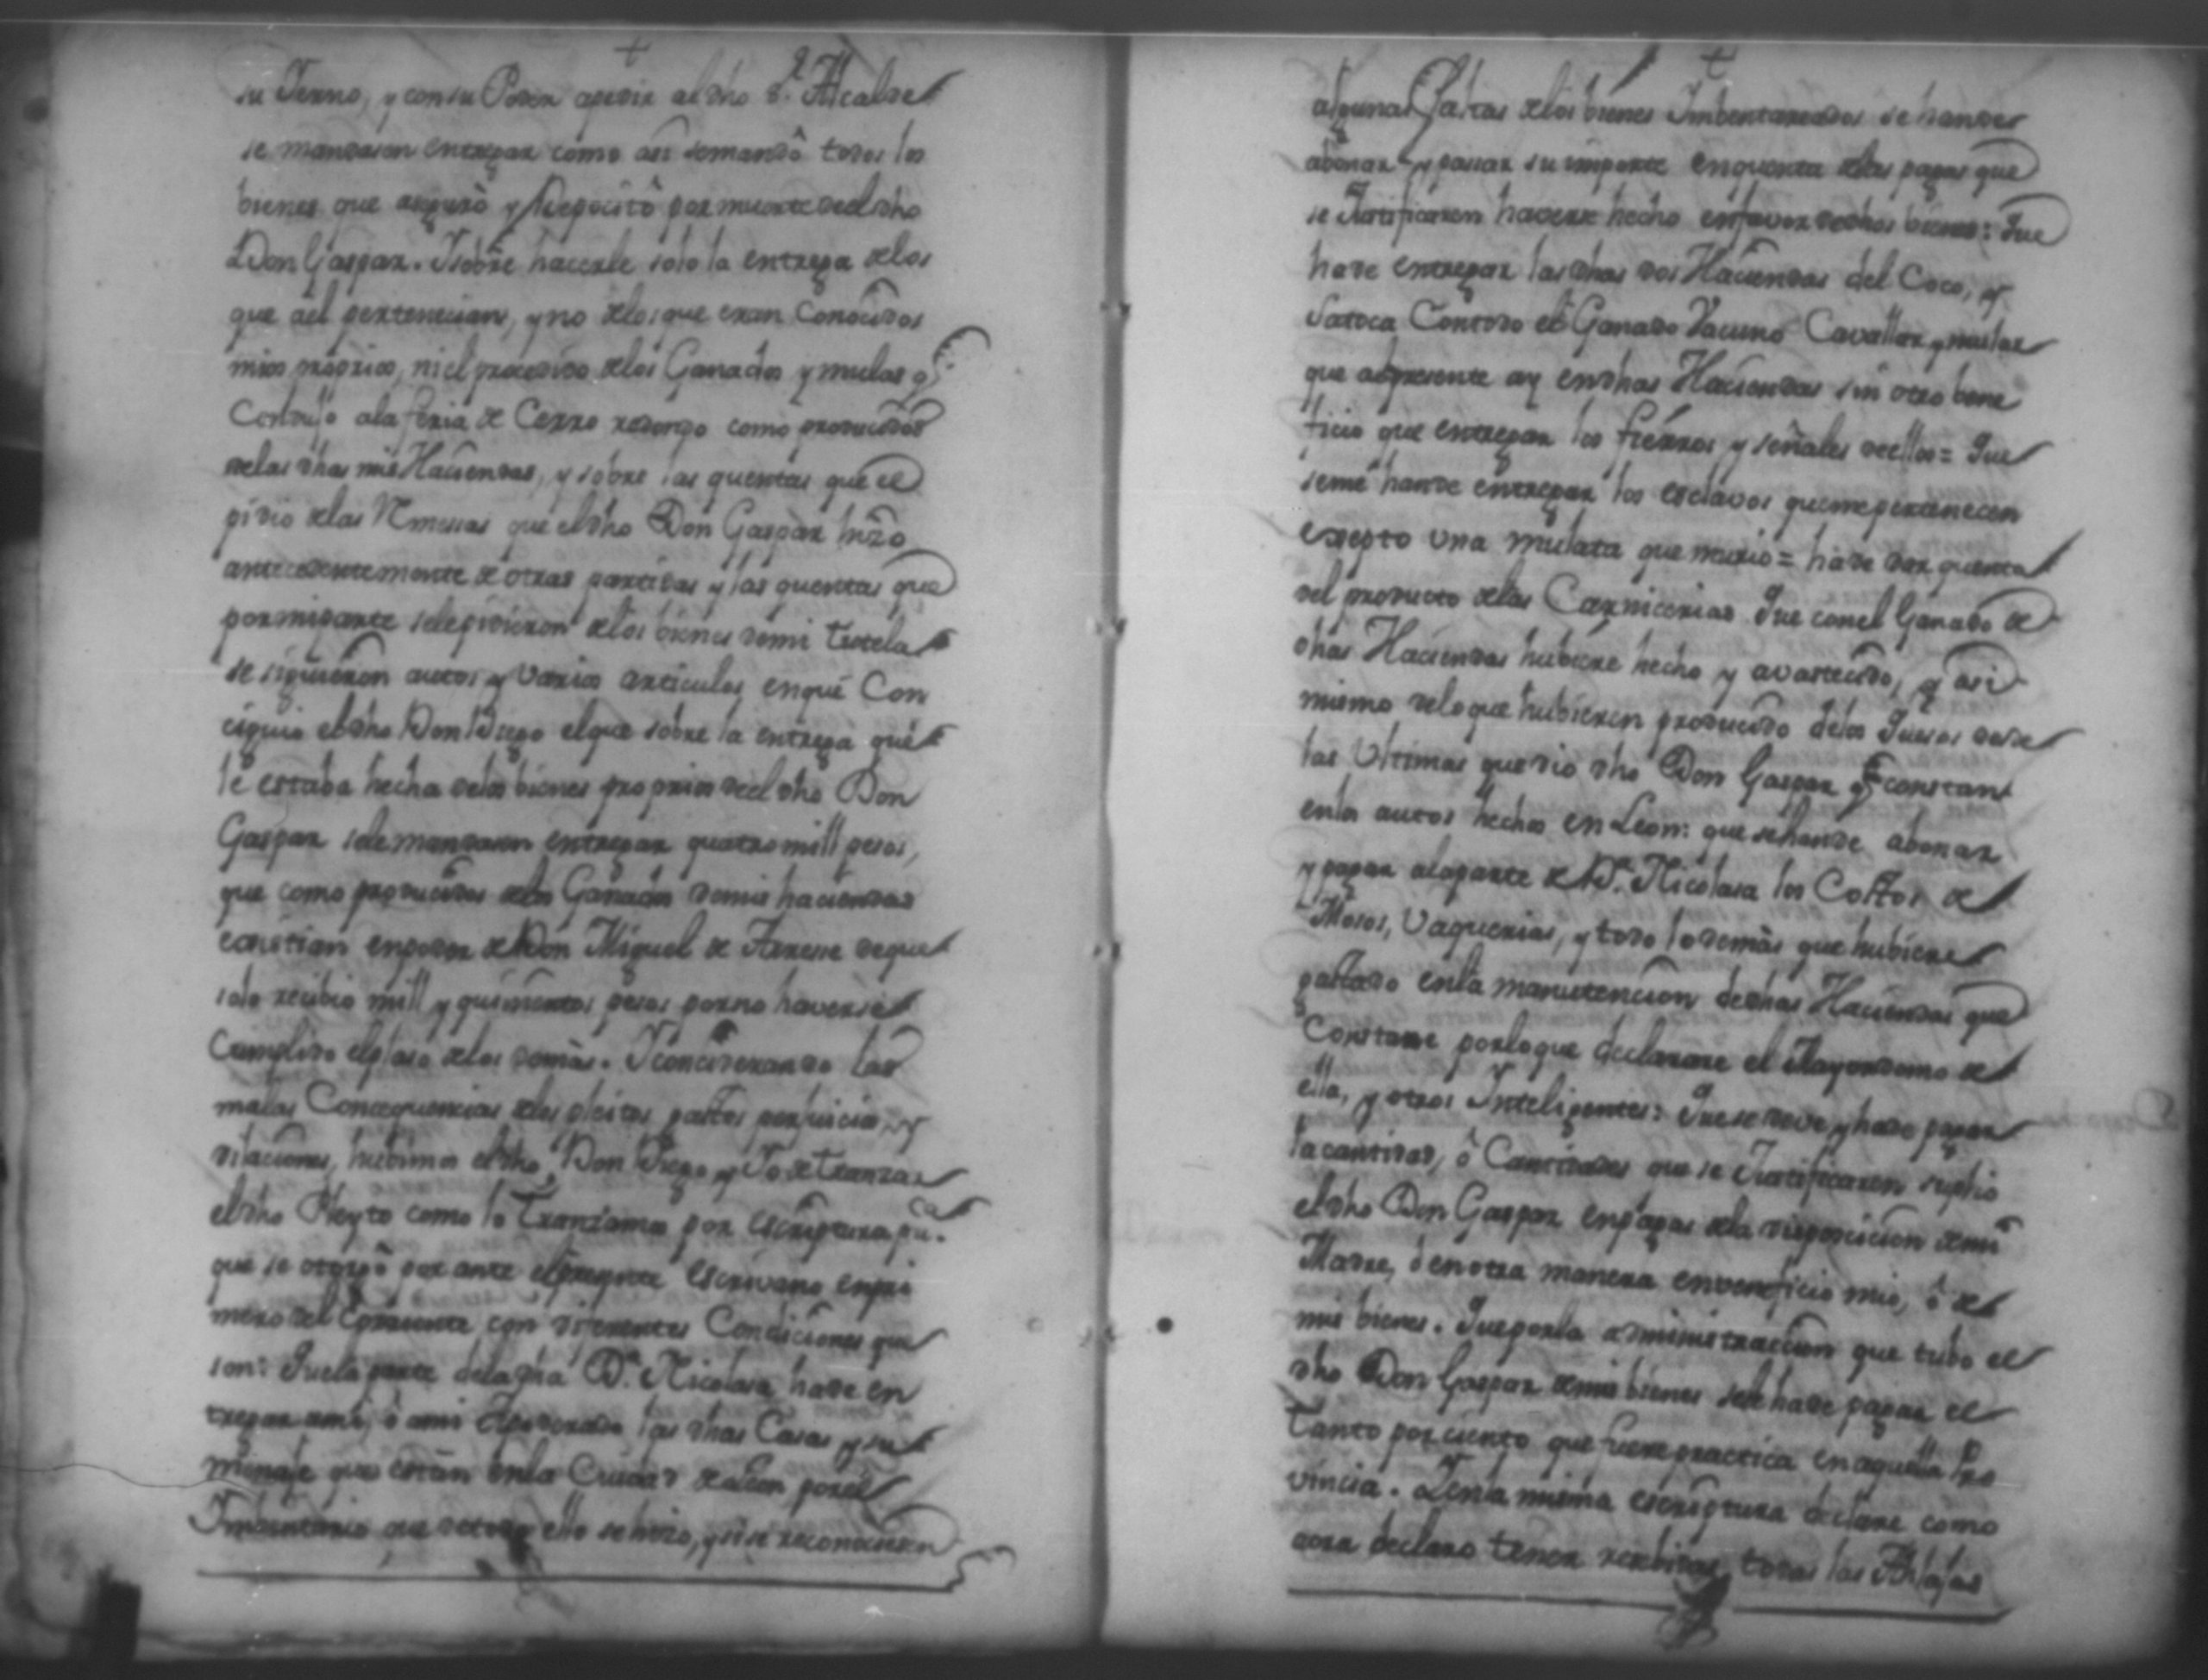 su Yerno, y con su Poder apedir al dho S.r Alcalde
se mandasen entregar como asi se mandô todos los
bienes que aseguró y Depocitô por muerte deel dho
Don Gaspar. Y sobre hacerle solo la entrega de los
que aêl pertenecian, y no de los que eran Conocidos
mios proprios, ni el procedido de los Ganados y mulas q.
Condujo ala feria de Cerro redondo como producidos
de las dhas mis Haciendas, y sobre las quentas que se
pidio de las Remesas que el dho Don Gaspar hizo
antecedentemente de otras partidas y las quentas que
por mi parte se le pidieron de los bienes de mi tutela
se siguieron autos y varios articulos en que Con
ciguio el dho Don Diego el que sobre la entrega que
le estaba hecha de los bienes proprios deel dho Don
Gaspar se le mandaron entregar quatro mill pesos,
que como producidos de los Ganados de mis haciendas
existian en poder de Don Miguel de de que
solo recibio mill y quinientos pesos por no haverse
Cumplido el plaso de los demâs. Y conciderando las
malas Concequencias de los pleitos gastos perjuicios, y
dilaciones, hubimos el dho Don Diego y Yo de tranzar
el dho Pleyto como lo tranzamos por escriptura pu.ca
que se otorgô por ante el presente escrivano en pri
mero del Corriente con diferentes Condiciones que
son: Que la parte de la dha D.a Nicolasa ha de en
tregar ami, ô ami Apoderado las dhas Casas y su
menaje que estân en la Ciudad de Leon por el
Imbentario que de todo ello se hizo, y si se reconocieren
algunas faltas de los bienes Imbentareados se han de
abonar y passar su importe en quenta de las pagas que
se Justificaren haverse hecho en favor de dhos bienes: Que
ha de entregar las dhas dos Haciendas del Coco, y
Satoca Con todo el Ganado Vacuno Cavallar y mular
que al presente ay en dhas Haciendas sin otro bene
ficio que entregar los fierros y señales de ellos= Que
se me han de entregar los esclavos que me pertenecen
exepto una mulata que murio= ha de dar quenta
del producto de las Carnicerias Que con el Ganado de
dhas Haciendas hubiere hecho y avastecido, y asi
mismo de lo que hubieren producido de los Quesos desde
las Ultimas que dio dho Don Gaspar q. constan
en los autos hechos en Leon: que se han de abonar
y pagar ala parte de D.a Nicolasa los Costos de
Mosos, Vaquerias, y todo lo demâs que hubiere
gastado en la manutencion de dhas Haciendas que
Constare por lo que declarare el Mayordomo de
ella, y otros Inteligentes: Que se deve y ha de pagar
la cantidad, ô Cantidades que se Justificaren suplio
el dho Don Gaspar en pagas de la disposicion de mi
Madre, ô en otra manera en veneficio mio, ô de
mis bienes. Que por la administracion que tubo el
dho Don Gaspar de mis bienes se le ha de pagar el
tanto por ciento que fuere practica en aquella Pro
vincia. Y en la misma escriptura declare como
aora declaro tener recebidas todas las Alajas